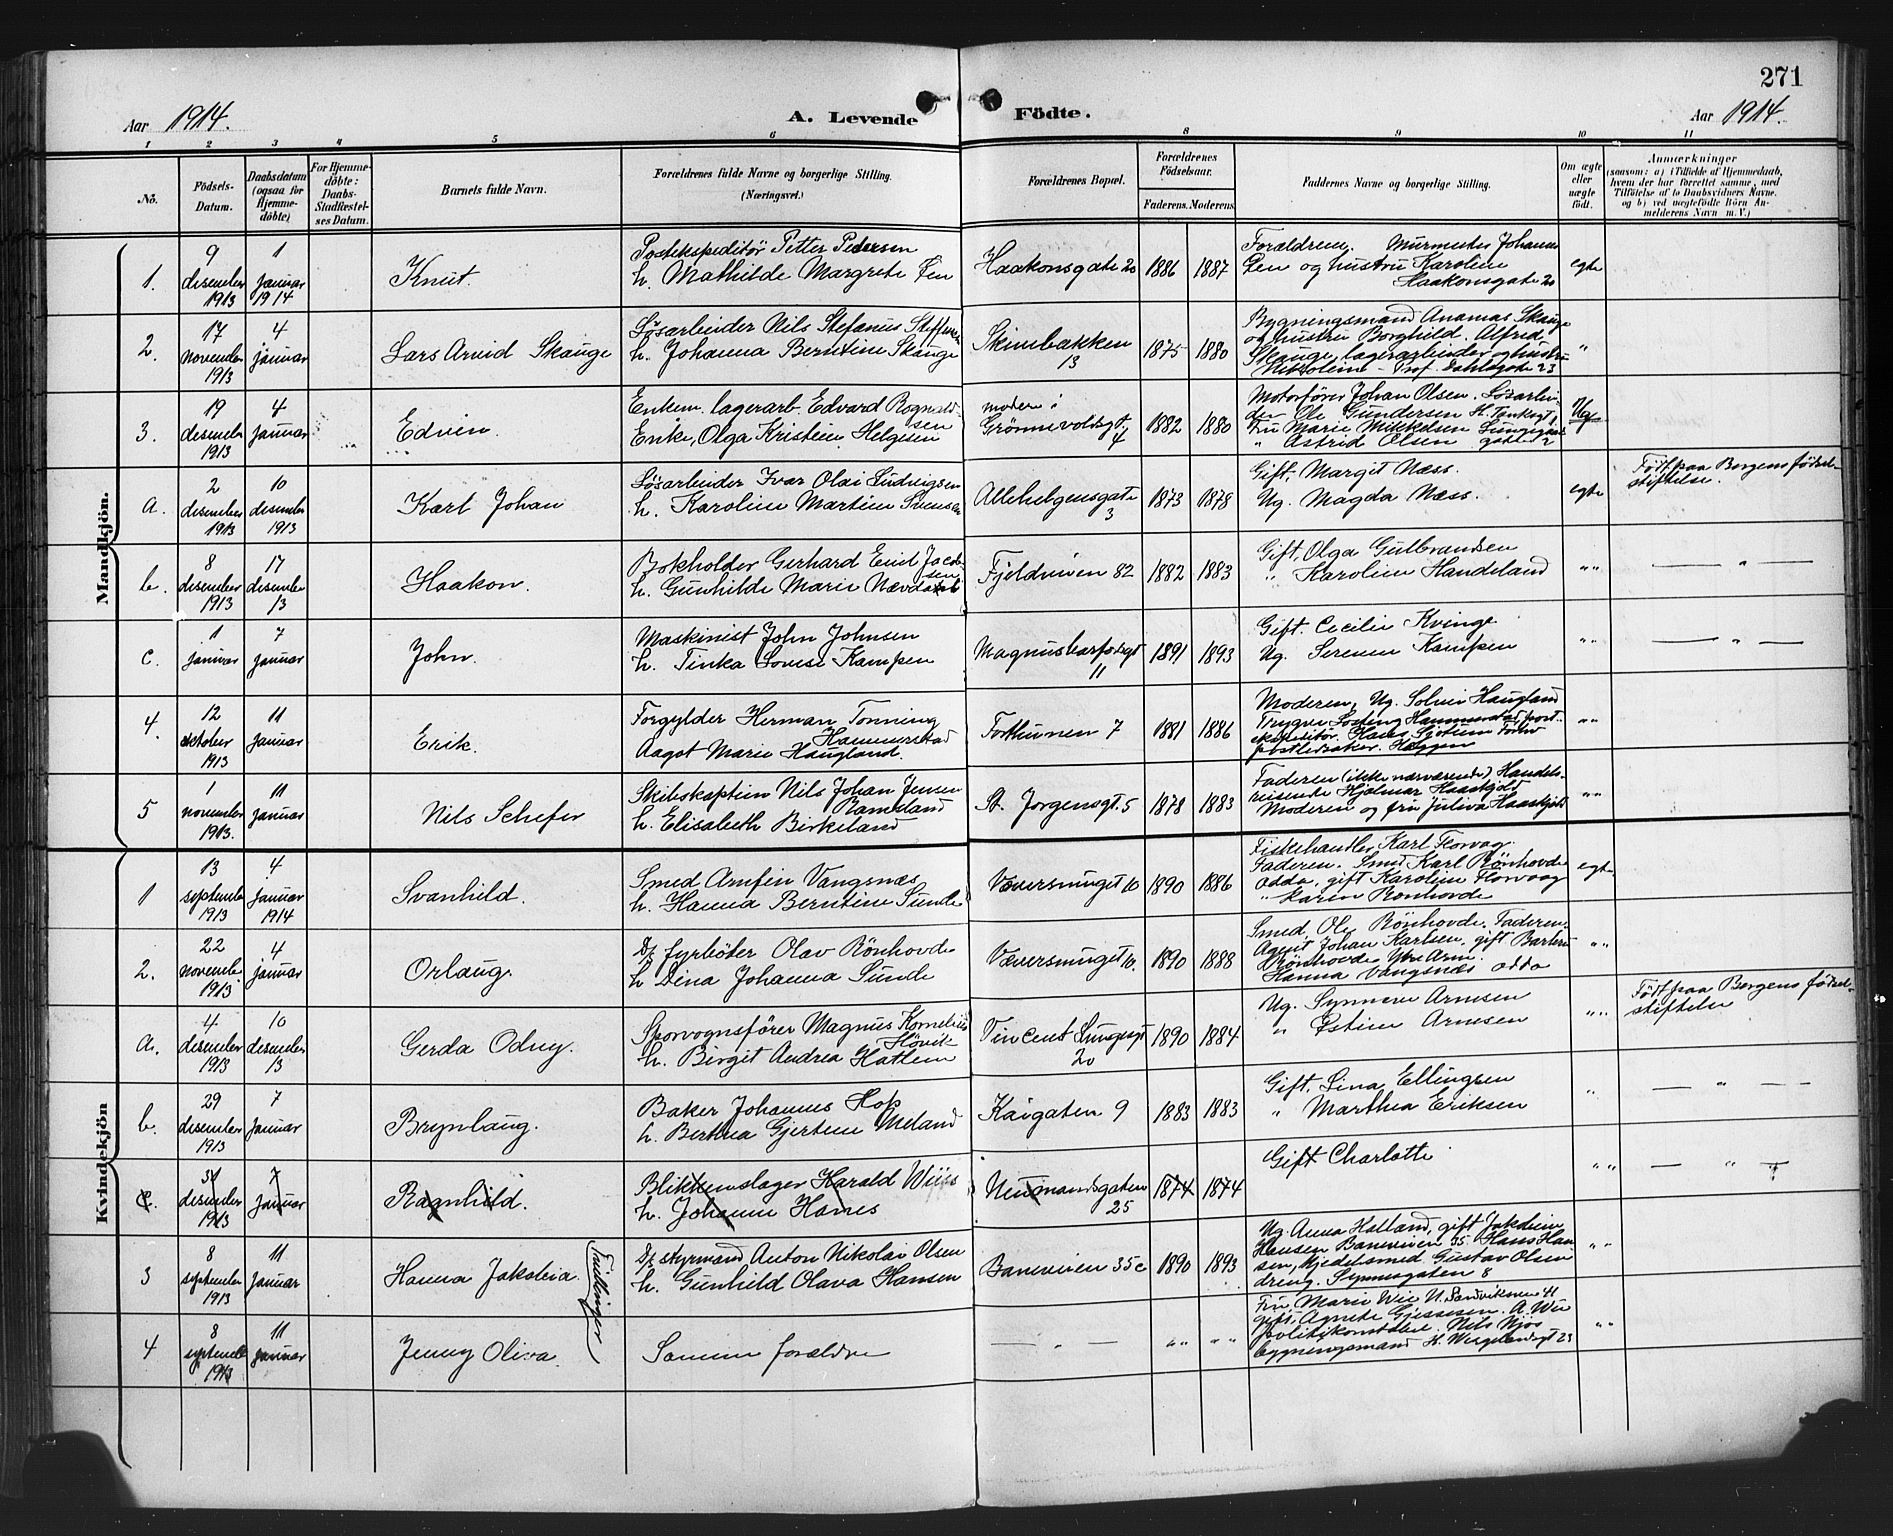 271
Aar 1914.
A. Levende Födte.
Aar 1914.
1 2 3 4 5 6 8 9 10 11
No.
Födsels-Datum.
Daabsdatum (ogsaa for Hjemme-döbte)
For Hjemme-döbte: Daabs-Stadfæstel-ses Datum.
Barnets fulde Navn.
Forældrenes fulde Navne og borgerlige Stilling. (Næringsvei.)
Forældrenes Bopæl.
Forældrenes Födselsaar.
Faderens. Moderens.
Faddernes Navne og borgerlige Stilling.
Om ægte eller uægte födt.
Anmærkninger
(saasom: a) i Tilfælde af Hjemmedaab, hvem der har forrettet samme, med Tilföielse af to Daabsvidners Navne. og b) ved uægtefödte Börn An-melderens Navn m. V.)
Mandkjön.
1. 9 desember 1913 1 januar 1914 Knut. Postekspeditør Petter Pedersen
h. Mathilde Margrete Øen Haakonsgate 20 1886 1887 Forældrene. Murmester Johannes
Øen og hustru Karoline
Haakonsgate 20 egte
2. 17 november 1913 4 januar Lars Arvid Skauge Løsarbeider Nils Stefanus Steffensen
h. Johanna Berntine Skauge Skivebakken 13 1875 1880 Bygningsmand Ananias Skauge
og hustru Borghild. Alfred
Skauge, lagerarbeider og hustru
Nikoline - Prof. Dahlsgate 23 "
3. 19 desember 1913 4 januar Edvin. Enkem. lagerarb. Edvard Rognald-
sen
Enke, Olga Kristine Helgesen moder i
Grønnevoldsgt. 4 1882 1880 Motorfører Johan Olsen. Løsarbei-
der Ole Gundersen H. Tanksgt
Fru Marie Mikkelsen
" Astrid Olsen gate 2 Ug
a. 2 desember 1913 10 desember 1913 Karl Johan Løsarbeider Ivar Olai Ludvigsen
h. Karoline Martine Svensen Allehelgensgate 3 1873 1878 Gift. Margit Næss.
Ug. Magda Næss. egte Født paa Bergens fødsel-
stiftelse.
b. 8 desember 1913 17 desember 13 Haakon. Bokholder Gerhard Emil Jacob-
sen
h. Gunhilde Marie Nævdal Fjeldveien 82 1882 1883 Gift, Olga Gulbrandsen
" Karoline Handeland " " — " —
c. 1 januar 7 januar John. Maskinist John Johnsen
h. Tinka Lovise Kampen Magnusbarfodsgt 11 1891 1893 Gift. Cecilie Kvinge
Ug. Serene Kampen " " — " —
4. 12 oktober 1913 11 januar Erik. Forgylder Herman Tonning
Hammerstad
Aagot Marie Haugland. Forthunen 7 1881 1886 Moderen, Ug. Solveig Haugland
Trygve post-
ekspeditør. Hans
" "
5 1 november 1913. 11 januar Nils Schefer Skibskaptein Nils Johan Jensen
Ramsland
h. Elisabeth Birkeland St. Jørgensgt. 5 1878 1883 Faderen (ikke nærværende) Handels-
reisende Hjalmar Haaskjold
Moderen og fru Juliva Haaskjold " "
Kvindekjön
1 13 september 1913 4 januar 1914 Svanhild. Smed Arnfin Vangsnæs
h. Hanna Berntine Sunde Væversmuget 10 1890 1886 Fiskehandler Karl Florvag
Faderen. Smed Karl Rønhovde
Odda, gift Karoline Florvaag
" Karin Rønhovde egte
2. 22 november 1913 4 januar Orlaug. D/s fyrbøter Olav Rønhovde
h Dina Johanna Sunde Væversmuget 10. 1890 1888 Smed Ole Rønhovde. Faderen.
Agent Johan Karlsen, gift Barbra
Rønhovde Ytre Arne.
Hanna Vangsnæs Odda " "
a. 4 desember 1913 10 desember 13 Gerda Odny. Sporvognsfører Magnus Kornelius
Høvik
h. Birgit Andrea Hatlem Vincent Lungesgt 20 1890 1884 Ug. Synnøve Arnesen
" Østine Arnesen " " Født paa Bergens fødsel-
stiftelse
b. 29 desember 1913 7 januar Brynlaug. Baker Johannes Hop
h. Berthea Gjertine Meland Kaigaten 9 1883 1883 Gift. Lina Ellingsen
" Marthea Eriksen " — " —
c. 31 desember 1913 7 januar Ragnhild. Blikkenslager Harald Wiiss
h. Johanne Hanes Neumandsgaten 25 1874 1874 Gift Charlotte " " — " —
3 8 september 1913 11 januar Hanna Jakobia D/s styrmand Anton Nikolai Olsen
h. Gunhild Olava Hansen Baneveien 35c 1890 1893 Ug. Anna Halland, gift Jakobine
Hansen Baneveien 35 Hans Han
sen, Kjedelsmed. Gustav Olsen
dreng. Synnesgaten 8 " "
Tvillinger
4 8 september 1913 11 januar Jenny Oliva. Samme forældre — " — " " " " Fru Marie Wie N. Sandviksvei 41
gift, Agnete Gjessesen. A. Wie
politikonstabel. Nils Njøs
bygningsmand H. Wergelandsgt 23 " "